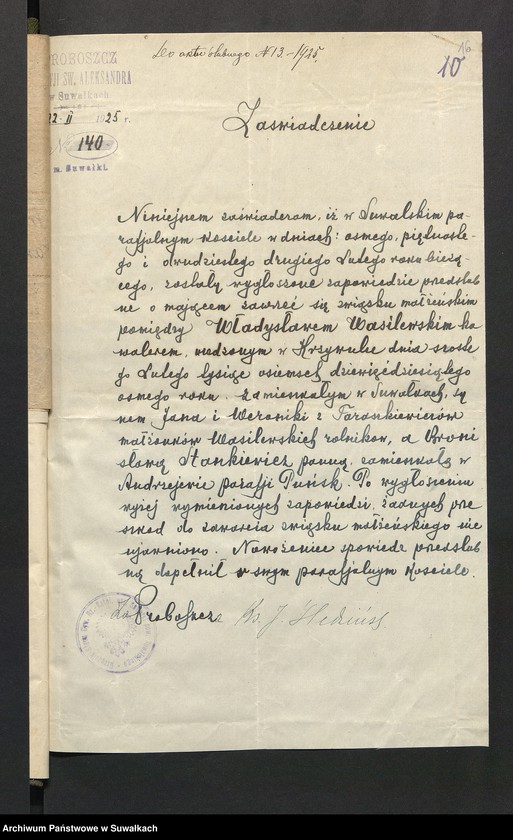 Do aktu ślubnego N 13.-1925.
16
10
PROBOSZCZ
ŚW. ALEKSANDRA
w Suwałkach
22. II 1925 r.
N 140
m. Suwałki.
Zaświadczenie
Niniejszem zaświadczam, iż w Suwalskim pa-
rafjalnym kościele w dniach: osmego, piętnaste-
go i dwudziestego drugiego Lutego roku bieżą-
cego, zostały wygłoszone zapowiedzie przedślub
ne o mającem zawrzeć się związku małżeńskim
pomiędzy Władysławem Wasilewskim ka
walerem, urodzonym w Krzywulce dnia szoste
go Lutego tysiąc osiemset dziewięćdziesiątego
osmego roku, zamieszkałym w Suwałkach, sy
nem Jana i Weroniki z Taraskiewiczów
małżonków Wasilewskich rolników, a Broni
sławą Stankiewicz panną, zamieszkałą w
Andrzejewie parafji Puńsk. Po wygłoszeniu
wyżej wymienionych zapowiedzi, żadnych prze
szkod do zawarcia związku małżeńskiego nie
ujawniono. Narożeniec spowiedz przedślub
ną dopełnił w swym parafjalnym kościele.
Za Proboszcza Ks. J.
Archiwum Państwowe w Suwałkach